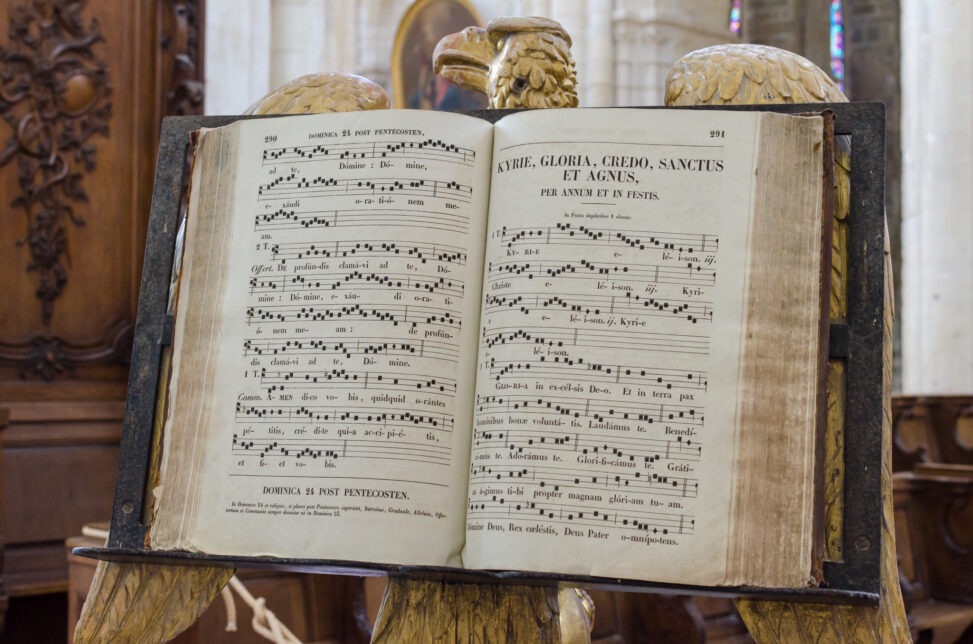 290 DOMINICA 24 POST PENTECOSTEN.
ad te, Dómine : Dó- mine,
e- xáudi o-ra-ti-ó- nem me-
am.
2 T.
Offert. DE profún-dis clamá-vi ad te, Dó-
mine : Dó-mine, e- xáu- di o-ra- ti-
ó- nem me- am : de profún-
dis clamá-vi ad te, Dó- mine.
1 T.
Comm. A-MEN di-co vo- bis, quidquid o-rántes
pé- titis, cré-di-te qui-a ac-ci-pi-é- tis,
et fi- et vo- bis.
DOMINICA 24 POST PENTECOSTEN.
In Dominica 24 et reliquis, si plures post Pentecosten supersint, Introitus, Graduale, Alleluia, Offer-
torium et Communio semper dicuntur ut in Dominica 23.
291
KYRIE, GLORIA, CREDO, SANCTUS
ET AGNUS,
PER ANNUM ET IN FESTIS.
In Festis duplicibus 1 classis
1 T.
KY- RI-E e- lé- i-son. iij.
Christe e- lé- i-son. iij. Kyri-
e e- lé- i-son. ij. Kyri-e
e- lé- i-son.
1 T.
GLO-RI-A in ex-cél-sis De-o. Et in terra pax
homínibus bonæ voluntá- tis. Laudámus te. Benedí-
cimus te. Ado-rámus te. Glori-fi-cámus te. Gráti-
as á-gimus ti-bi propter magnam glóri-am tu-am.
Dómine Deus, Rex cœléstis, Deus Pater o-mnípo-tens.